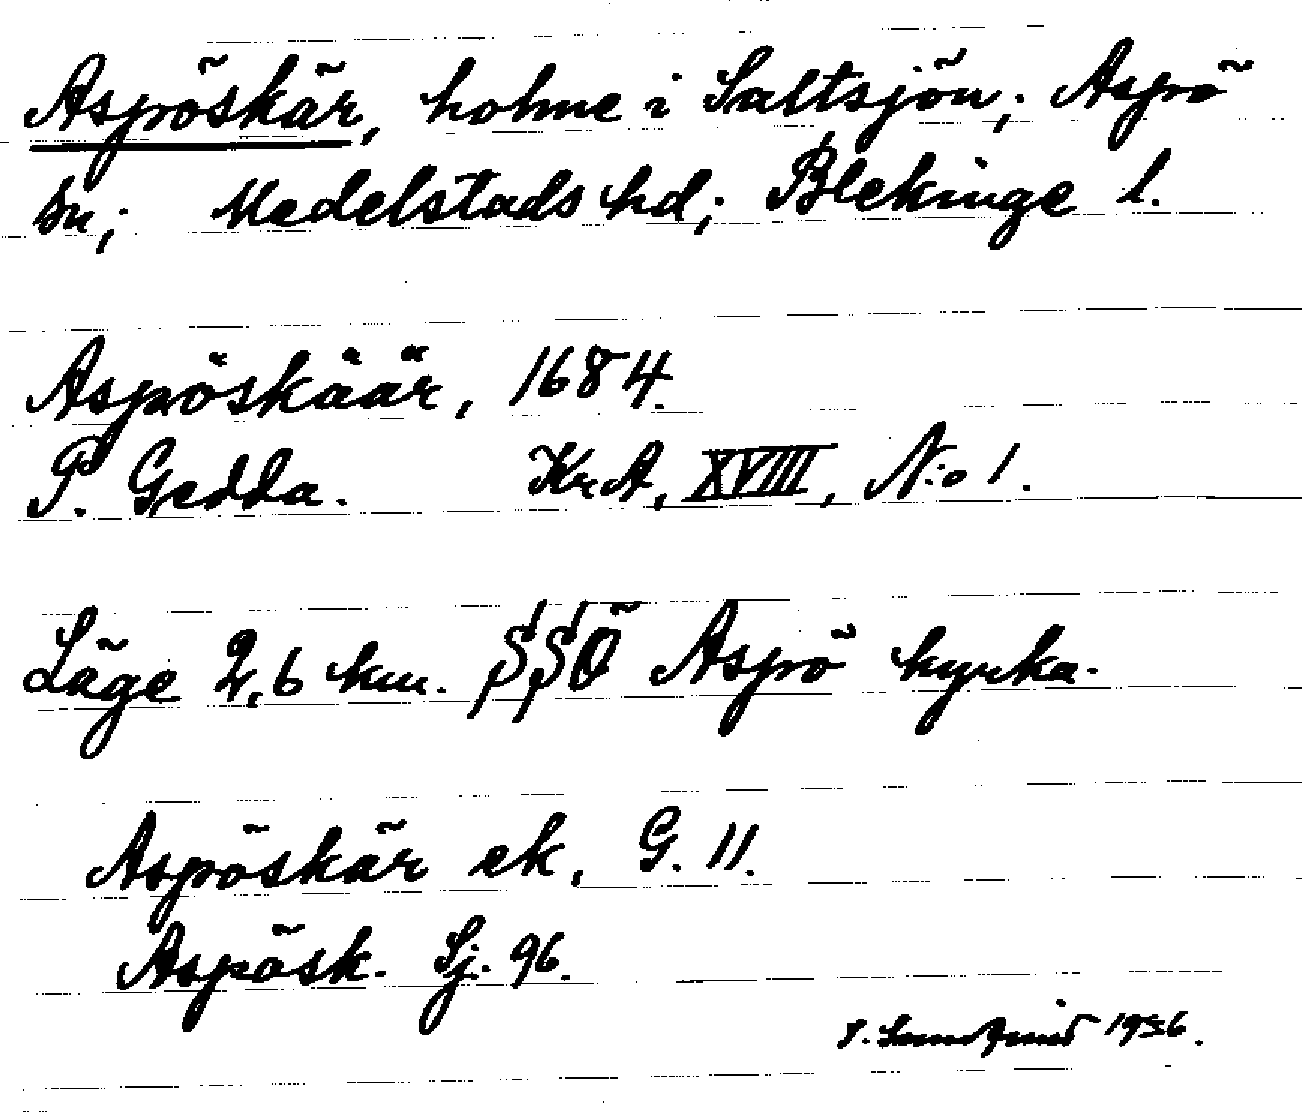 Aspöskär, holme i Saltsjön; Aspö
sn; Medelstads hd; Blekinge l.
Aspöskäär, 1684.
P. Gedda. KrA, XVIII, N:o 1.
Läge 2,6 km. SSÖ Aspö kyrka.
Aspöskär ek, G. 11.
Aspösk. Sj. 96.
1936.